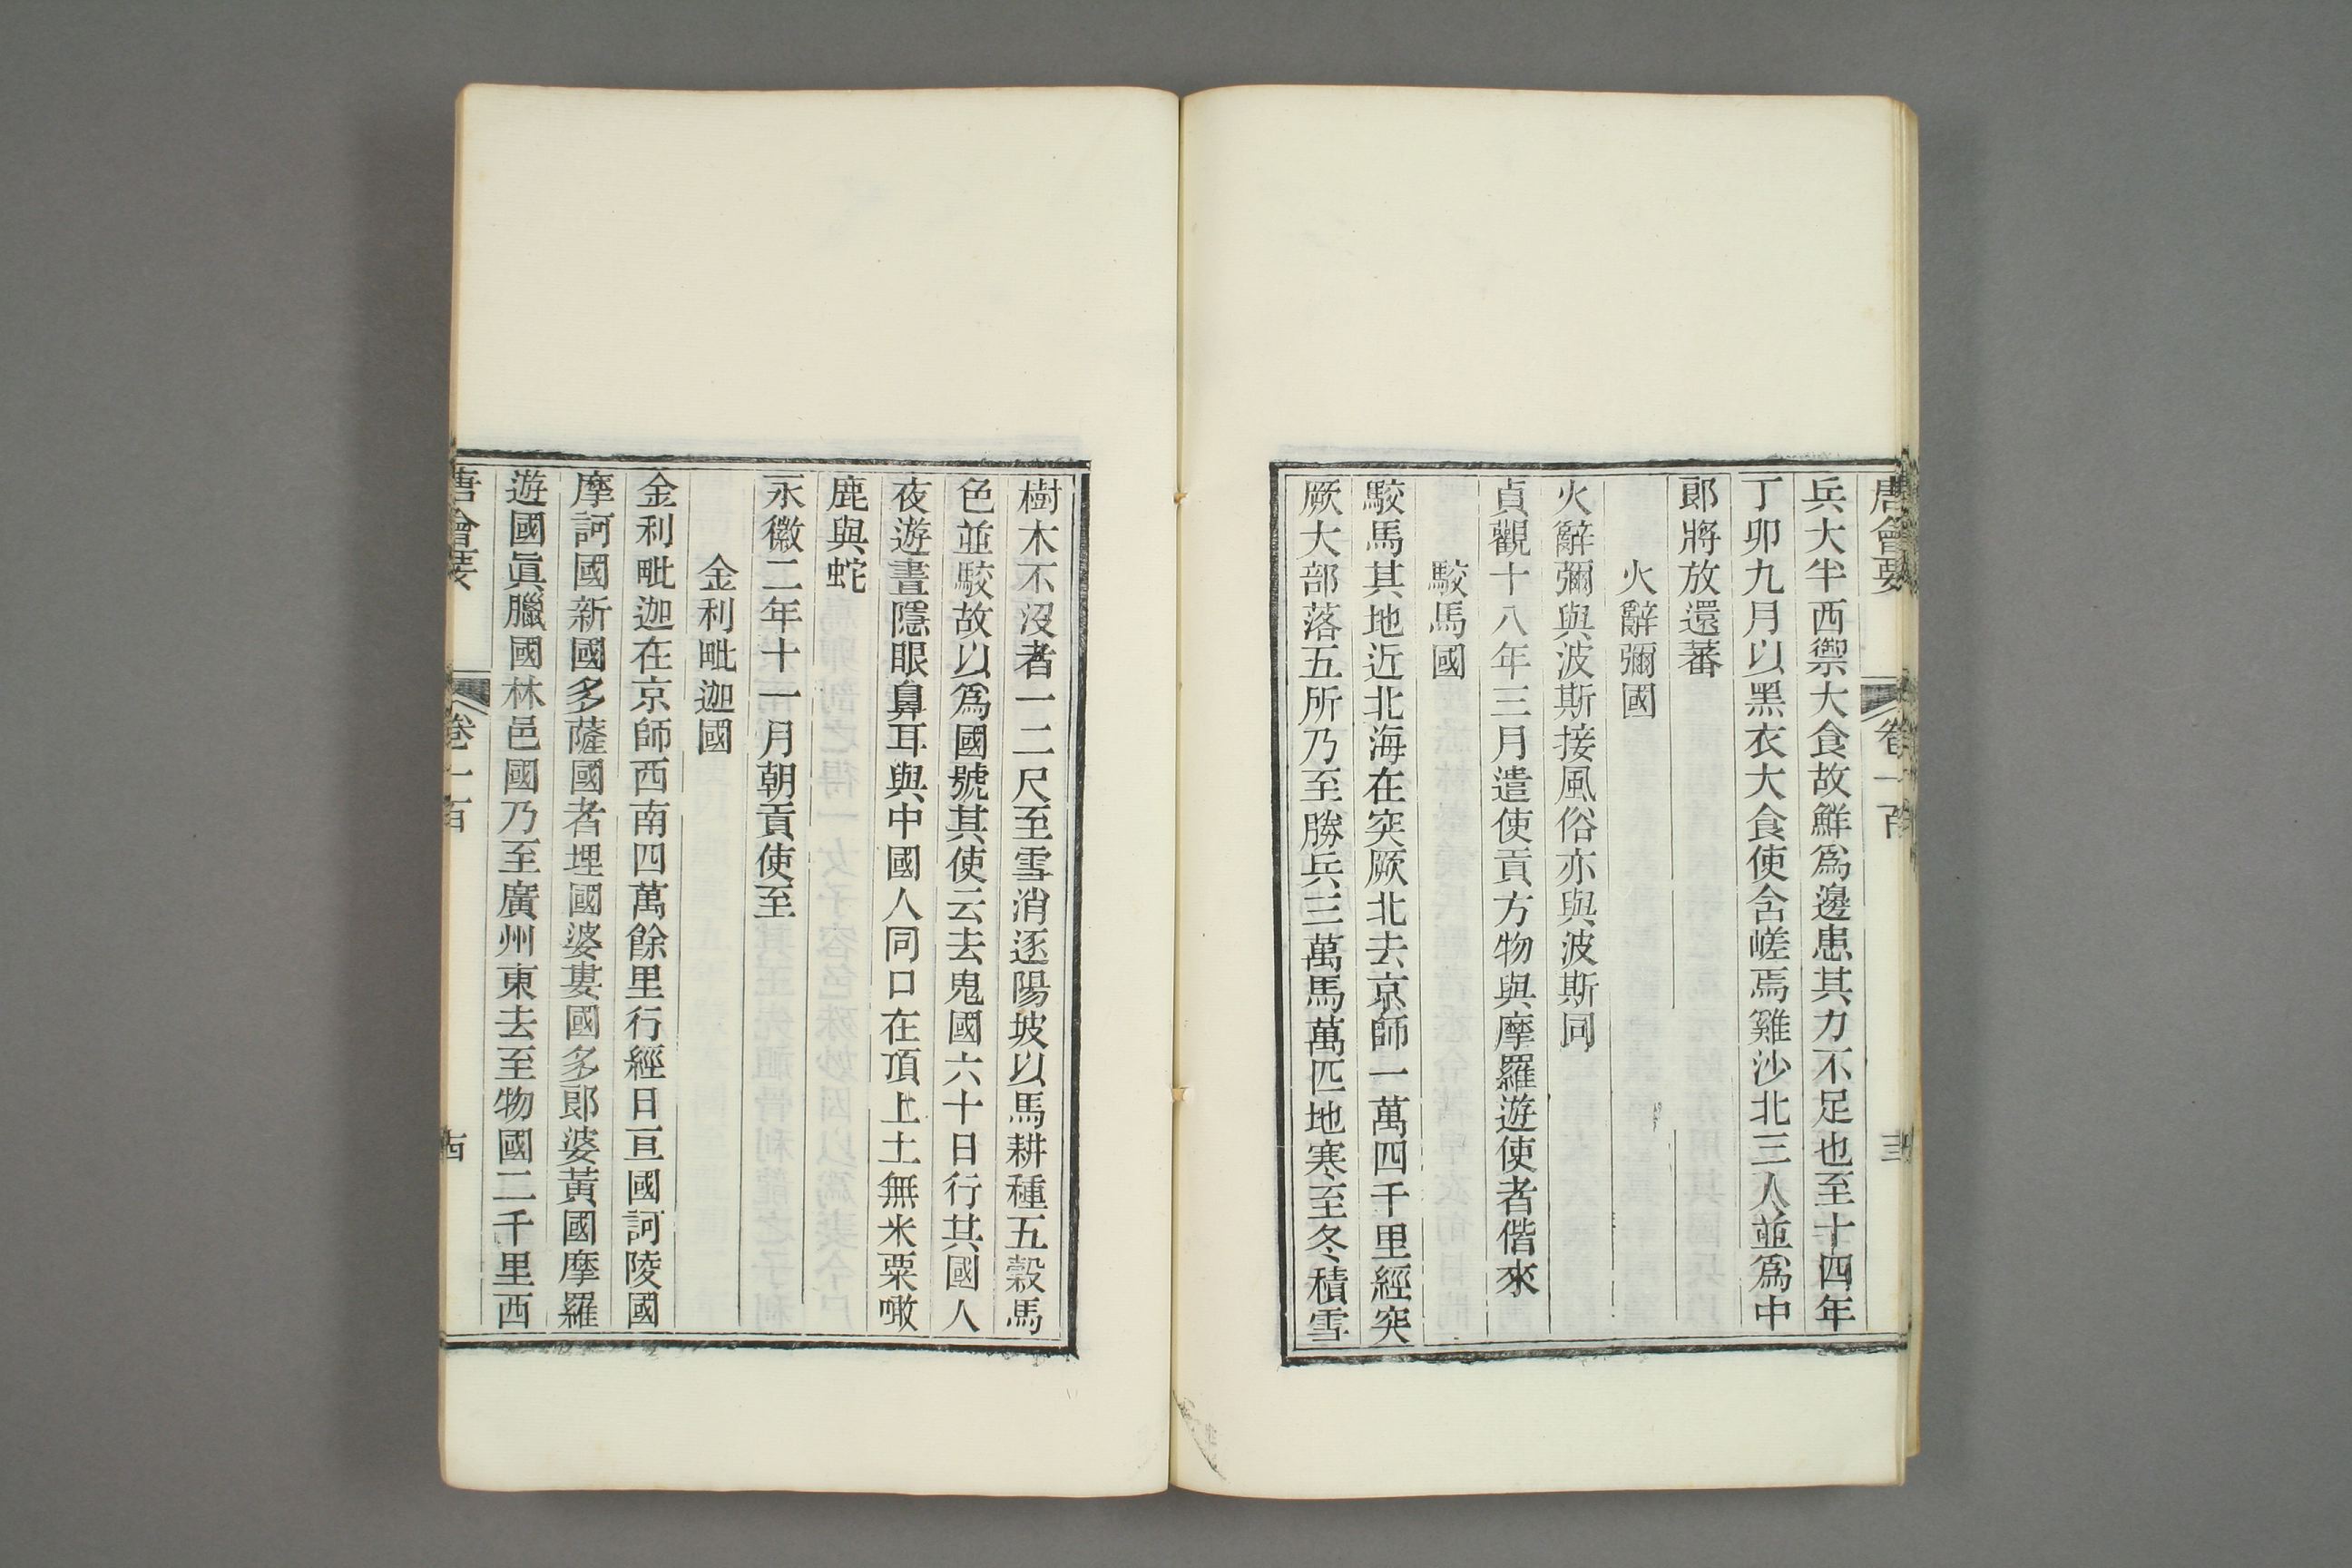 唐會要 卷一百
兵大半西禦大食故鮮爲邊患其力不足也至十四年
丁卯九月以黑衣大食使含嵯焉雞沙北三人並爲中
郎將放還蕃
火辭彌國
火辭彌與波斯接風俗亦與波斯同
貞觀十八年三月遣使貢方物與摩羅遊使者偕來
駮馬國
駮馬其地近北海在突厥北去京師一萬四千里經突
厥大部落五所乃至勝兵三萬馬萬匹地寒至冬積雪
樹木不沒者一二尺至雪消逐陽坡以馬耕種五穀馬
色並駮故以爲國號其使云去鬼國六十日行其國人
夜遊晝隱眼鼻耳與中國人同口在頂上土無米粟噉
鹿與蛇
永徽二年十一月朝貢使至
金利毗迦國
金利毗迦在京師西南四萬餘里行經日亘國訶陵國
摩訶國新國多薩國者埋國婆婁國多郎婆黃國摩羅
遊國眞臘國林邑國乃至廣州東去至物國二千里西
唐會要 卷一百